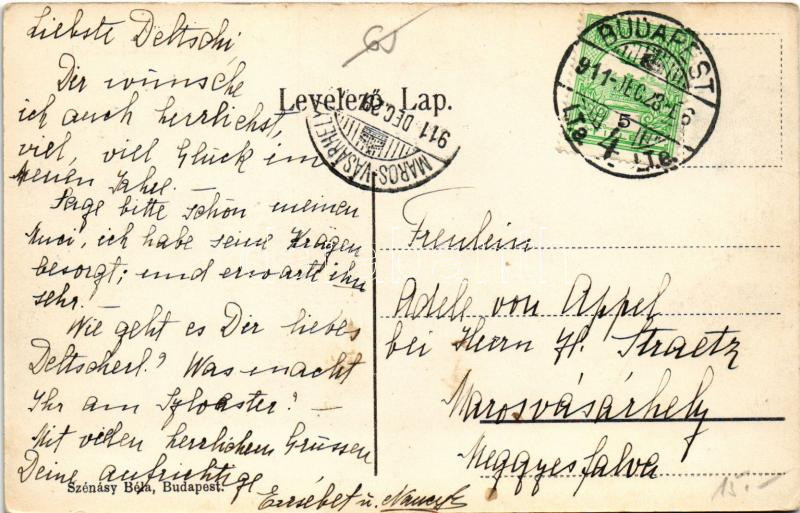 Liebste Deltschi
Dir wünsche
ich auch herrlichst,
viel, viel Glück im
neuen Jahre. –
Sage bitte schön meinen
Muci, ich habe seine Krägen
besorgt; und erwarte ihn
sehr. –
Wie geht es Dir liebes
Deltscherl? Was macht
Ihr am Sylvaster? –
Mit vielen herrlichen Grüssen
Deine aufrichtige
Erzsébet u.
Szénásy Béla, Budapest.
65
Levelező Lap.
MAROS-VÁSÁRHELY
911 DEC. 29
BUDAPEST
911 DEC. 28
5
4
Freulein
Adele von Appel
bei Herrn H. Straetz
Marosvásárhely
Meggyesfalva
15.–